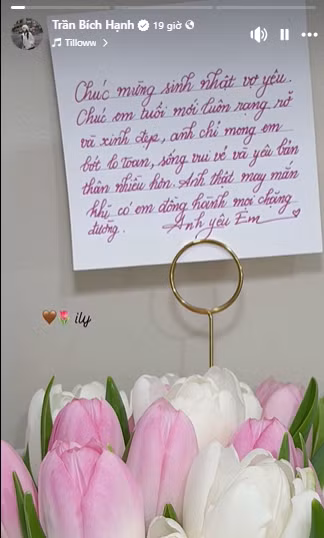 Trần Bích Hạnh 19 giờ
Tilloww
Chúc mừng sinh nhật vợ yêu.
Chúc em tuổi mới luôn rạng rỡ
và xinh đẹp, anh chỉ mong em
bớt lo toan, sống vui vẻ và yêu bản
thân nhiều hơn. Anh thật may mắn
khi có em đồng hành mọi chặng
đường. Anh yêu Em
ily